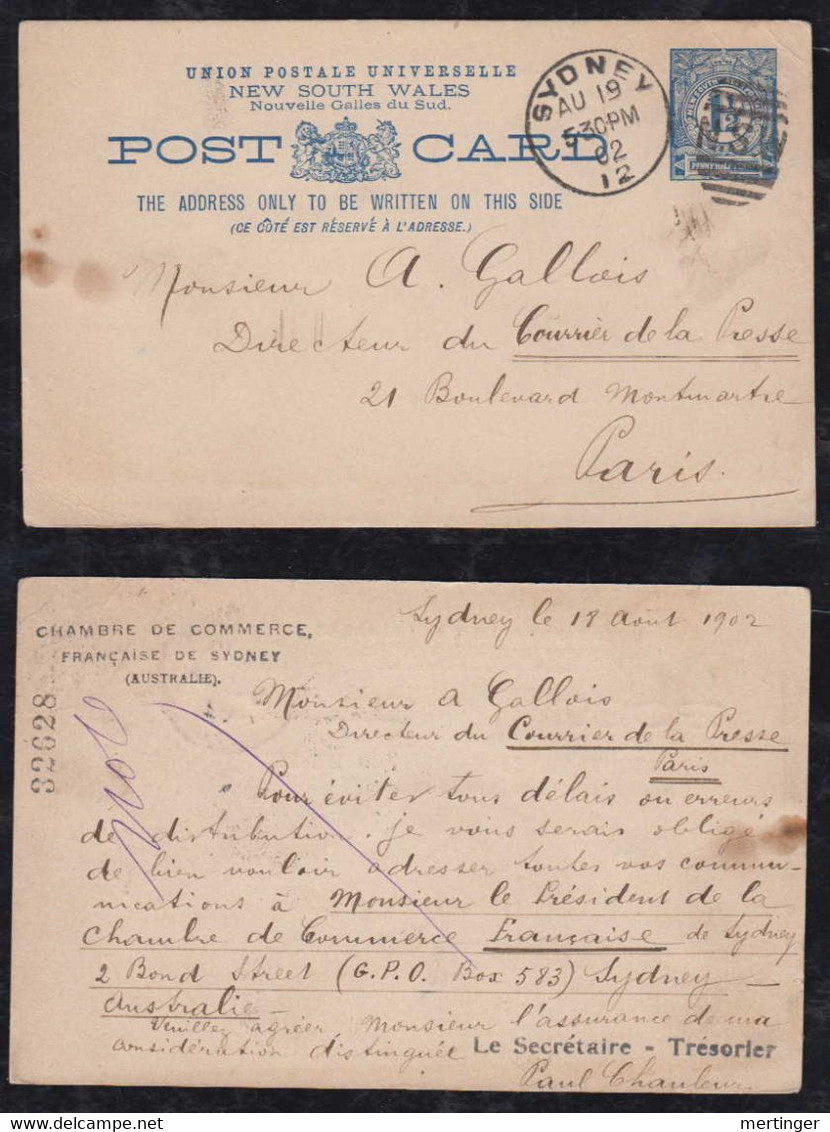 UNION POSTALE UNIVERSELLE
NEW SOUTH WALES
Nouvelle Galles du Sud.
POST CARD
THE ADDRESS ONLY TO BE WRITTEN ON THIS SIDE
(CE CÔTÉ EST RÉSERVÉ À L'ADRESSE.)
SYDNEY
AU 19
5-30PM
02
12
Monsieur A. Gallois
Directeur du Courrier de la Presse
21 Boulevard Montmartre
Paris.
CHAMBRE DE COMMERCE,
FRANÇAISE DE SYDNEY
(AUSTRALIE).
32628
Sydney le 18 Aout 1902
Monsieur A Gallois
Directeur du Courrier de la Presse
Paris
Pour éviter tous délais ou erreurs
de distribution, je vous serais obligé
de bien vouloir adresser toutes vos commu-
nications à Monsieur le Président de la
Chambre de Commerce Française de Sydney
2 Bond Street (G.P.O. Box 583) Sydney -
Australie -
Veuillez agréer, Monsieur l'assurance de ma
considération distinguée
Le Secrétaire - Trésorier
Paul
mertinger